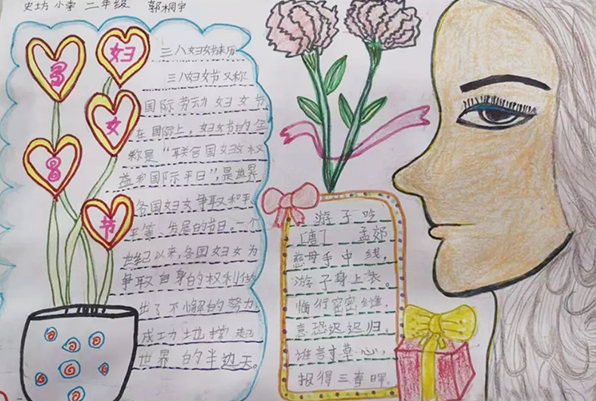 史坊小学 二年级 郭桐宇
三八妇女节
三八妇女节来历
三八妇女节又称
国际劳动妇女节
在国际上,妇女节的全
称是“联合国妇女权
益和国际和平日”,是世界
各国妇女争取和平、
平等、发展的节日。一个
世纪以来,各国妇女为
争取自身的权利做
出了不懈的努力
成功地撑起
世界的半边天。
游子吟
[唐] 孟郊
慈母手中线,
游子身上衣。
临行密密缝,
意恐迟迟归。
谁言寸草心,
报得三春晖。